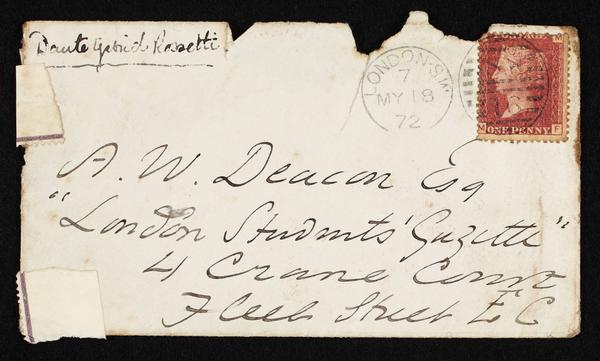 Dante Gabriel Rossetti
LONDON·S.W
7
MY 18
72
ONE PENNY
M F
A. W. Deacon Esq
"London Students' Gazette"
4 Crane Court
Fleet Street E C